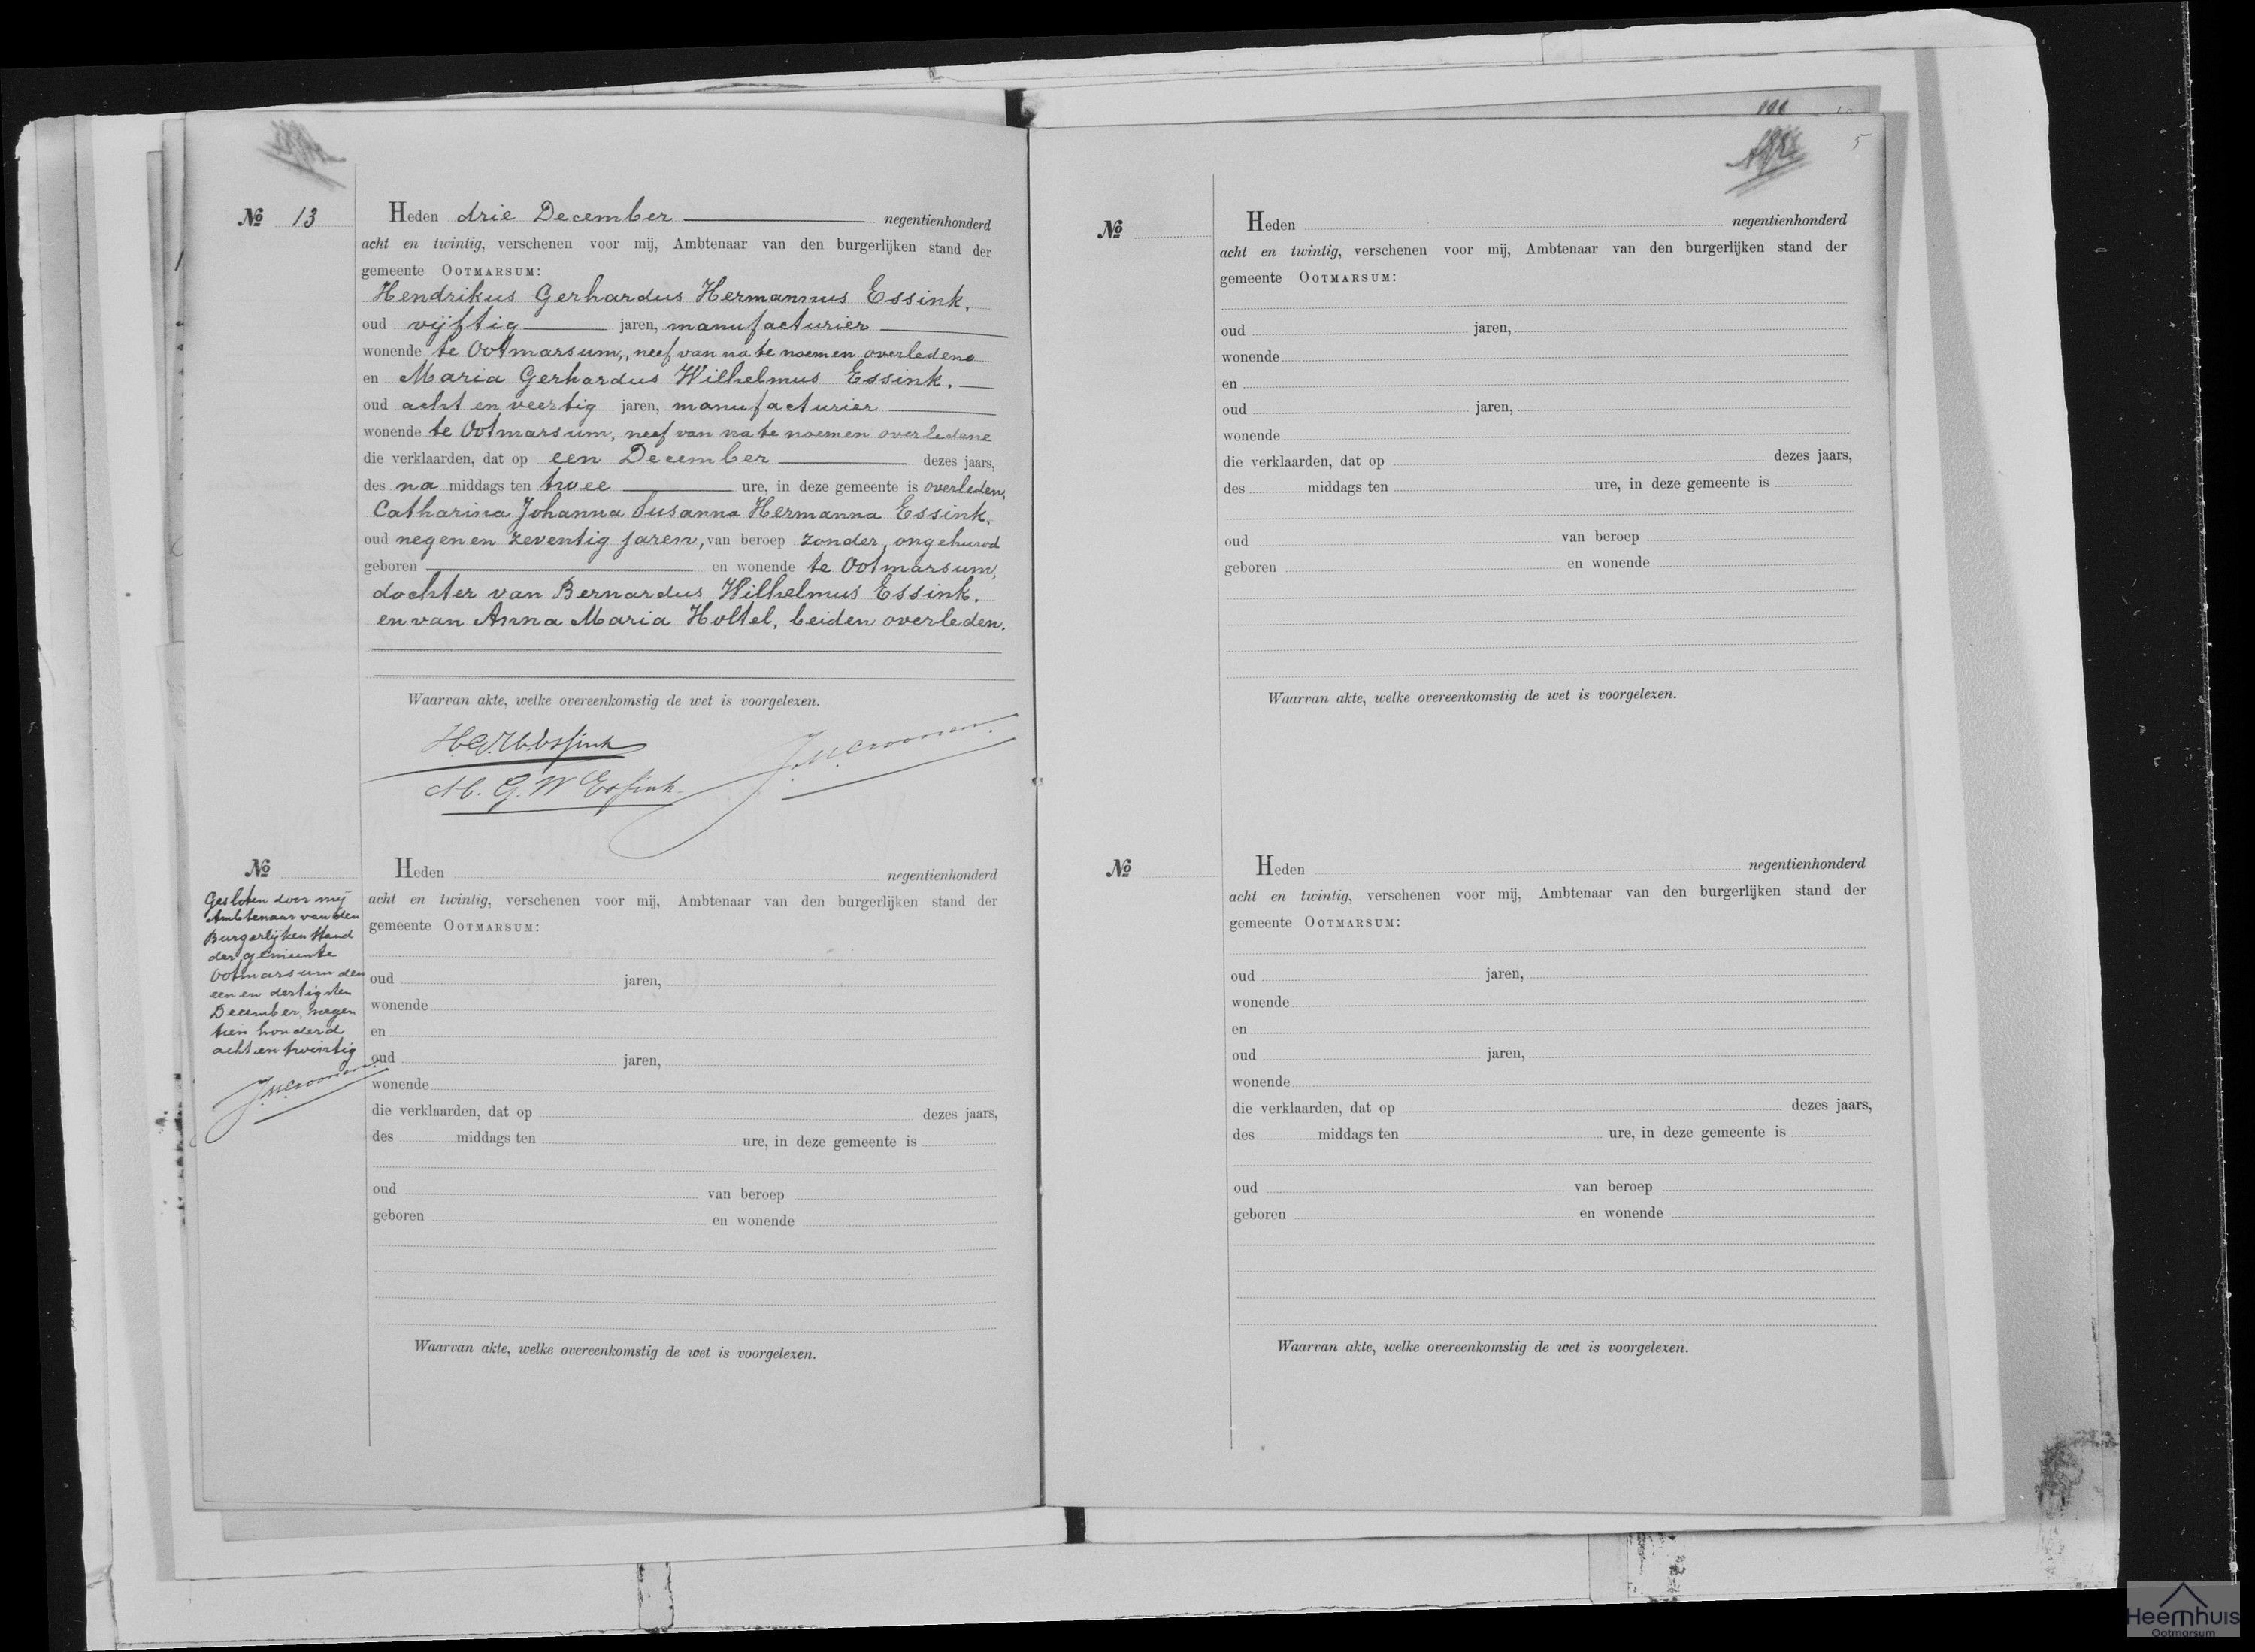 Nº 13
Heden drie December negentienhonderd
acht en twintig, verschenen voor mij, Ambtenaar van den burgerlijken stand der
gemeente OOTMARSUM:
Hendrikus Gerhardus Hermannus Essink,
oud vijftig jaren, manufacturier
wonende te Ootmarsum, neef van na te noemen overledene
en Maria Gerhardus Wilhelmus Essink.
oud acht en veertig jaren, manufacturier
wonende te Ootmarsum, neef van na te noemen overledene
die verklaarden, dat op een December dezes jaars,
des na middags ten twee ure, in deze gemeente is overleden,
Catharina Johanna Susanna Hermanna Essink,
oud negen en zeventig jaren, van beroep zonder, ongehuwd
geboren en wonende te Ootmarsum,
dochter van Bernardus Wilhelmus Essink.
en van Anna Maria Holtel, beiden overleden.
Waarvan akte, welke overeenkomstig de wet is voorgelezen.
H.G.H. Essink
M. G. W Essink
Nº
Gesloten door mij
Ambtenaar van den
Burgerlijken Stand
der gemeente
Ootmarsum den
een en dertigsten
December, negen
tien honderd
acht en twintig
Heden negentienhonderd
acht en twintig, verschenen voor mij, Ambtenaar van den burgerlijken stand der
gemeente OOTMARSUM:
oud jaren,
wonende
en
oud jaren,
wonende
die verklaarden, dat op dezes jaars,
des middags ten ure, in deze gemeente is
oud van beroep
geboren en wonende
Waarvan akte, welke overeenkomstig de wet is voorgelezen.
5
Nº
Heden negentienhonderd
acht en twintig, verschenen voor mij, Ambtenaar van den burgerlijken stand der
gemeente OOTMARSUM:
oud jaren,
wonende
en
oud jaren,
wonende
die verklaarden, dat op dezes jaars,
des middags ten ure, in deze gemeente is
oud van beroep
geboren en wonende
Waarvan akte, welke overeenkomstig de wet is voorgelezen.
Nº
Heden negentienhonderd
acht en twintig, verschenen voor mij, Ambtenaar van den burgerlijken stand der
gemeente OOTMARSUM:
oud jaren,
wonende
en
oud jaren,
wonende
die verklaarden, dat op dezes jaars,
des middags ten ure, in deze gemeente is
oud van beroep
geboren en wonende
Waarvan akte, welke overeenkomstig de wet is voorgelezen.
Heemhuis
Ootmarsum